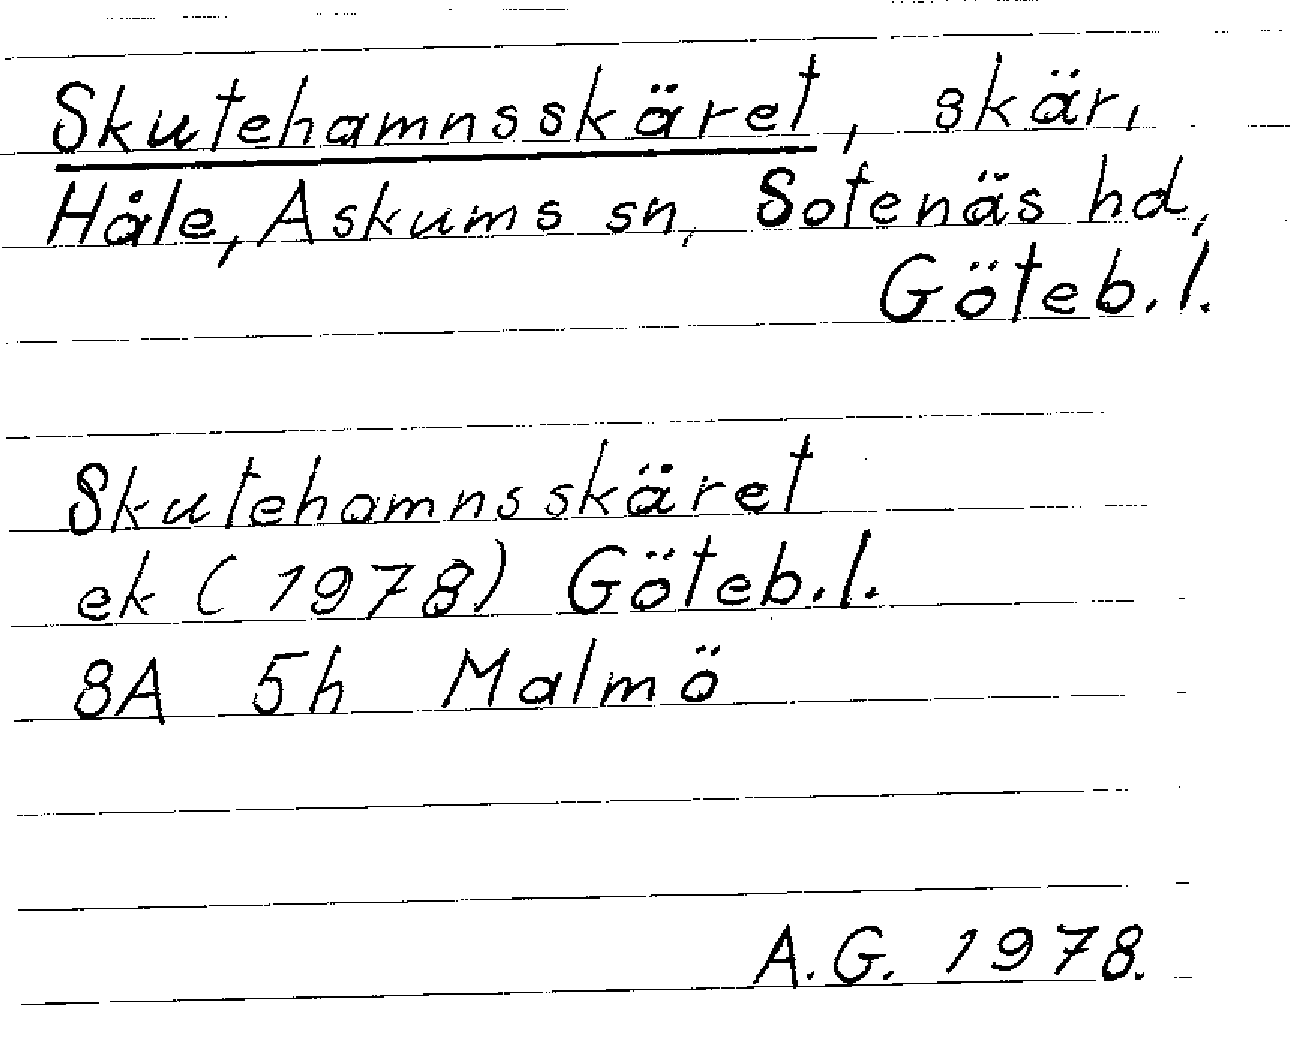 Skutehamnsskäret, skär,
Håle, Askums sn, Sotenäs hd,
Göteb. l.
Skutehamnsskäret
ek (1978) Göteb. l.
8A 5h Malmö
A.G. 1978.